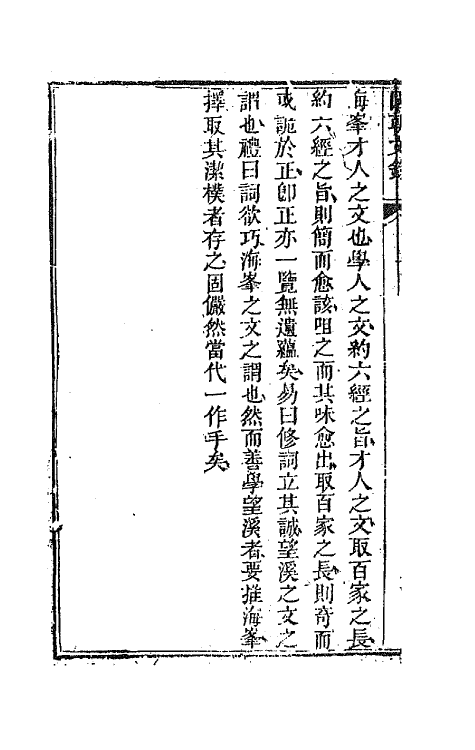 國朝文錄
海峯才人之文也學人之文約六經之旨才人之文取百家之長
約六經之旨則簡而愈該咀之而其味愈出取百家之長則奇而
或詭於正卽正亦一覽無遺蘊矣易曰修詞立其誠望溪之文之
謂也禮曰詞欲巧海峯之文之謂也然而善學望溪者要推海峯
擇取其潔樸者存之固儼然當代一作手矣